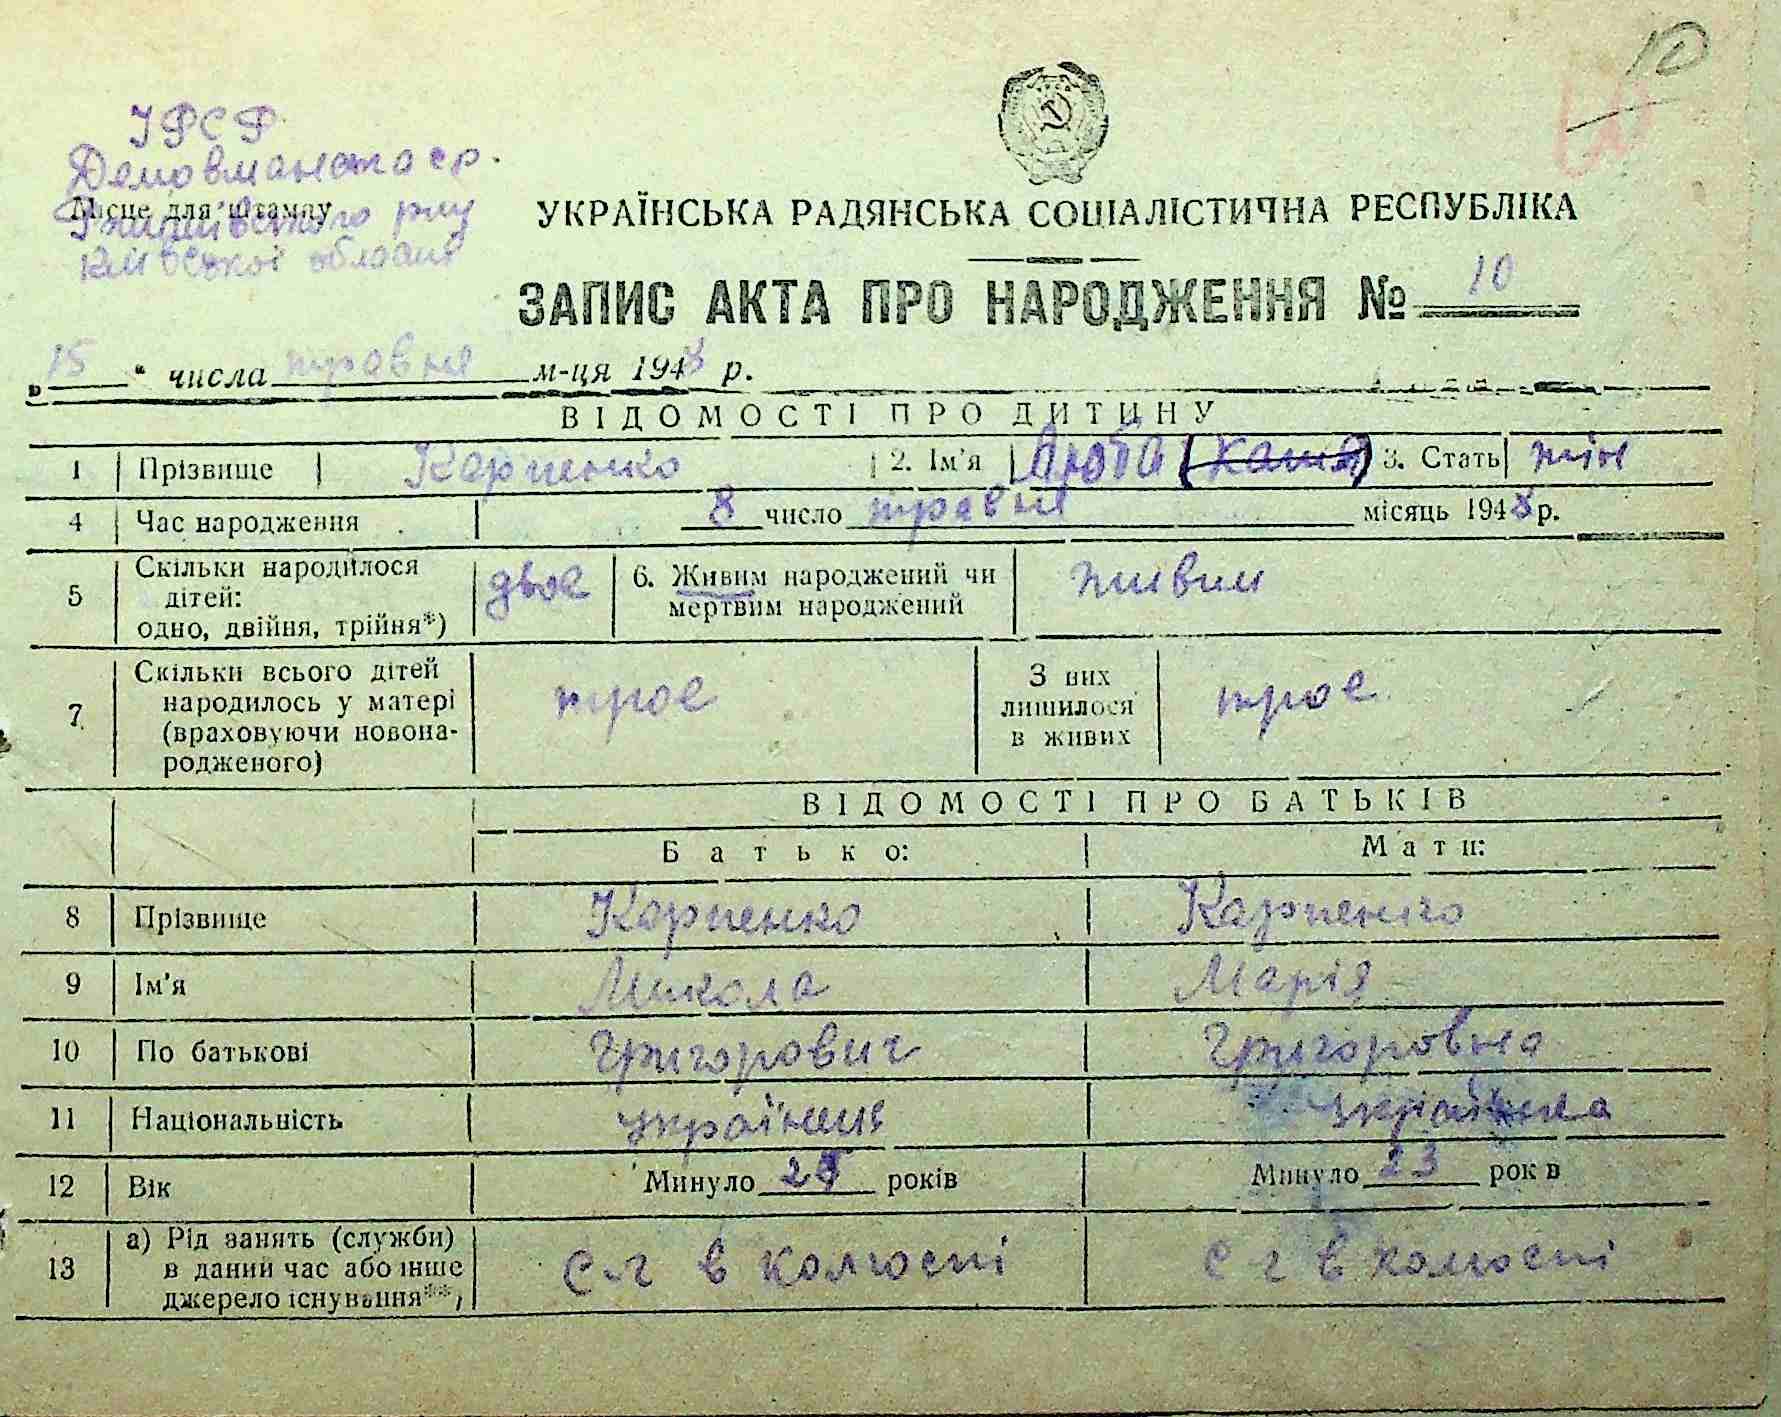 10
УРСР
Демовманська ср.
Місце для штампу
Ржищівського р-ну
Київської області
УКРАЇНСЬКА РАДЯНСЬКА СОЦІАЛІСТИЧНА РЕСПУБЛІКА
ЗАПИС АКТА ПРО НАРОДЖЕННЯ № 10
„ 15 “ числа травня м-ця 1948 р.
ВІДОМОСТІ ПРО ДИТИНУ
1 Прізвище Карпенко 2. Ім'я Люба (Катя) 3. Стать жін
4 Час народження 8 число травня місяць 1948 р.
5 Скільки народилося дітей: одно, двійня, трійня*) двоє 6. Живим народжений чи мертвим народжений живим
7 Скільки всього дітей народилось у матері (враховуючи новонародженого) троє З них лишилося в живих троє
ВІДОМОСТІ ПРО БАТЬКІВ
Батько: Мати:
8 Прізвище Карпенко Карпенко
9 Ім'я Микола Марія
10 По батькові Григорович Григоровна
11 Національність українець українка
12 Вік Минуло років Минуло 23 рок в
13 а) Рід занять (служби) в даний час або інше джерело існування**) с г в колгоспі с г в колгоспі